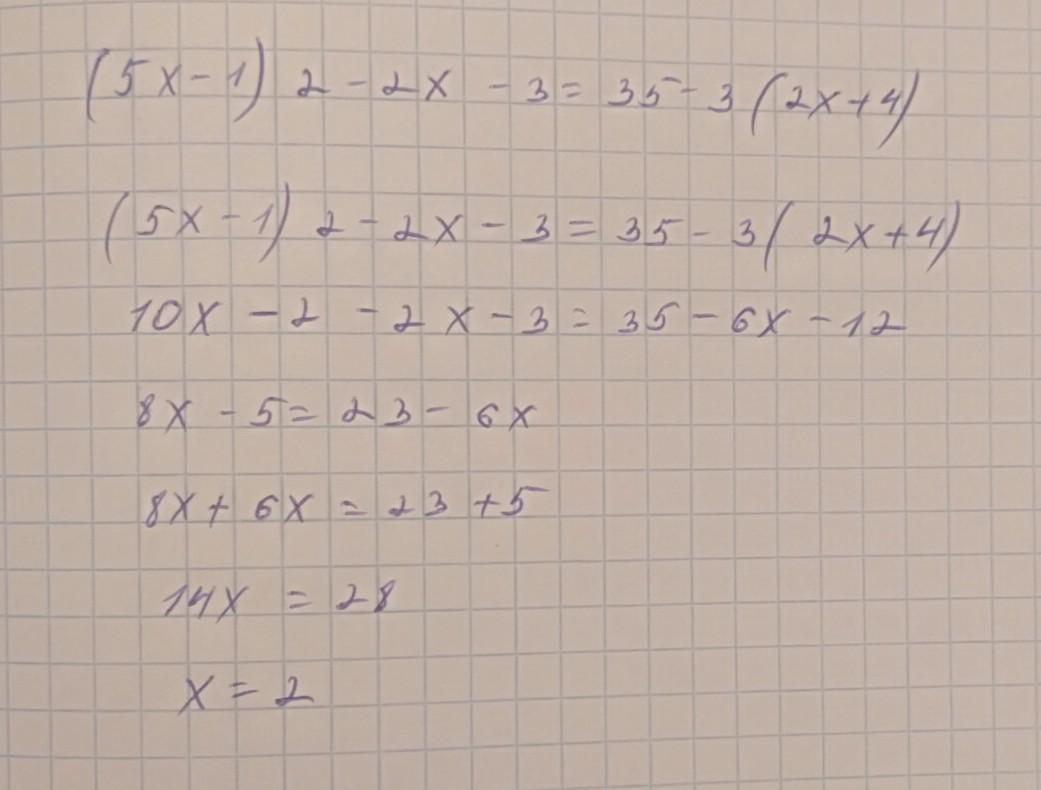 (5x-1) 2 - 2x - 3 = 35 - 3(2x+4)
(5x-1) 2 - 2x - 3 = 35 - 3(2x+4)
10x - 2 - 2x - 3 = 35 - 6x - 12
8x - 5 = 23 - 6x
8x + 6x = 23 + 5
14x = 28
x = 2